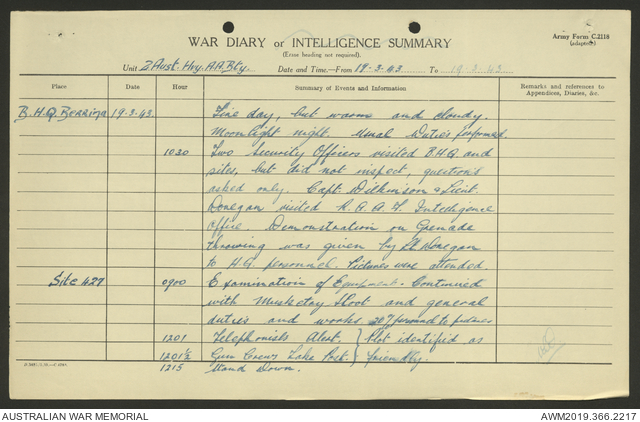 WAR DIARY or INTELLIGENCE SUMMARY
Army Form C.2118
(adapted)
(Erase heading not required).
Unit 2 Aust. Hvy. A.A. Bty. Date and Time.—From 19-3-43 To 19-3-43
Place Date Hour Summary of Events and Information Remarks and references to
Appendices, Diaries, &c.
B.H.Q. Berrima 19-3-43. Fine day, but warm and cloudy.
Moonlight night. Usual Duties performed.
1030 Two Security Officers visited B.H.Q. and
sites, but did not inspect, questions
asked only. Capt. Dickinson & Lieut.
Donegan visited R.A.A.F. Intelligence
Office. Demonstration on Grenade
throwing was given by Lt Donegan
to H.Q. personnel. Pictures were attended.
Site 427 0900 Examination of Equipment. Continued
with Musketry Shoot and general
duties and works. 20% personnel to pictures
1201 Telephonists Alert. } Plot identified as
1201½ Gun Crews Take Post. } friendly.
1215 Stand Down.
AUSTRALIAN WAR MEMORIAL
AWM2019.366.2217